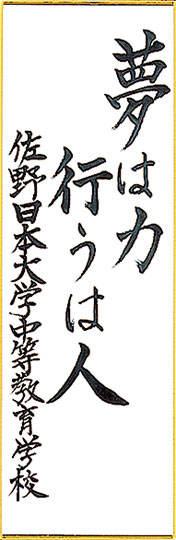 夢は力
行うは人
佐野日本大学中等教育学校